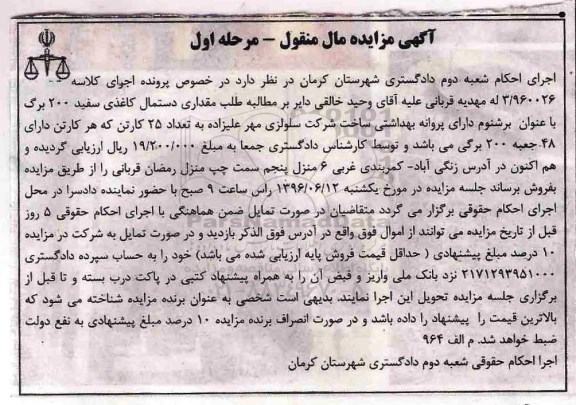 آگهی مزایده مال منقول – مرحله اول
اجرای احکام شعبه دوم دادگستری شهرستان کرمان در نظر دارد در خصوص پرونده اجرای کلاسه
۳/۹۶۰۰۲۶ له مهدیه قربانی علیه آقای وحید خالقی دایر بر مطالبه طلب مقداری دستمال کاغذی سفید ۲۰۰ برگ
با عنوان برشنوم دارای پروانه بهداشتی ساخت شرکت سلولزی مهر علیزاده به تعداد ۲۵ کارتن که هر کارتن دارای
۴۸ جعبه ۲۰۰ برگی می باشد و توسط کارشناس دادگستری جمعا به مبلغ ۱۹/۲۰۰/۰۰۰ ریال ارزیابی گردیده و
هم اکنون در آدرس زنگی آباد- کمربندی غربی ۶ منزل پنجم سمت چپ منزل رمضان قربانی را از طریق مزایده
بفروش برساند جلسه مزایده در مورخ یکشنبه ۱۳۹۶/۰۶/۱۲ راس ساعت ۹ صبح با حضور نماینده دادسرا در محل
اجرای احکام حقوقی برگزار می گردد متقاضیان در صورت تمایل ضمن هماهنگی با اجرای احکام حقوقی ۵ روز
قبل از تاریخ مزایده می توانند از اموال فوق واقع در آدرس فوق الذکر بازدید و در صورت تمایل به شرکت در مزایده
۱۰ درصد مبلغ پیشنهادی ( حداقل قیمت فروش پایه ارزیابی شده می باشد) خود را به حساب سپرده دادگستری
۲۱۷۱۲۹۳۹۵۱۰۰۰ نزد بانک ملی واریز و قبض آن را به همراه پیشنهاد کتبی در پاکت درب بسته و تا قبل از
برگزاری جلسه مزایده تحویل این اجرا نمایند. بدیهی است شخصی به عنوان برنده مزایده شناخته می شود که
بالاترین قیمت را پیشنهاد را داده باشد و در صورت انصراف برنده مزایده ۱۰ درصد مبلغ پیشنهادی به نفع دولت
ضبط خواهد شد. م الف ۹۶۴
اجرا احکام حقوقی شعبه دوم دادگستری شهرستان کرمان